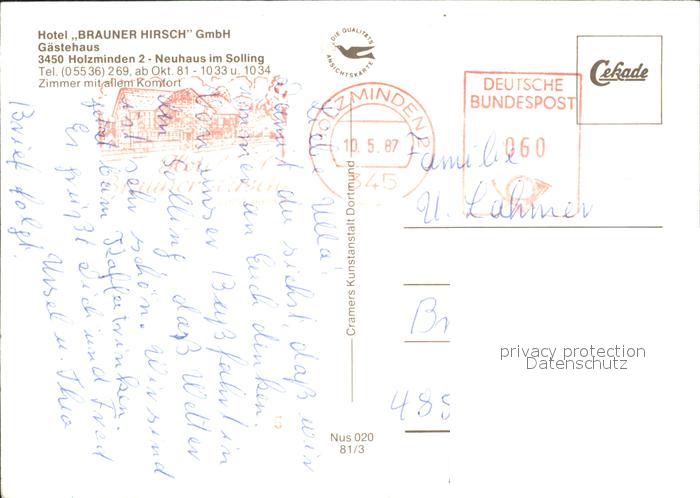 Hotel „BRAUNER HIRSCH" GmbH
Gästehaus
3450 Holzminden 2 - Neuhaus im Solling
Tel. (05536) 269, ab Okt. 81 - 1033 u. 1034
Zimmer mit allem Komfort
DIE QUALITÄTS
ANSICHTSKARTE
Cekade
HOLZMINDEN 2
10.5.87
345
DEUTSCHE
BUNDESPOST
060
Hotel
Brauner Hirsch
Liebe Ulla!
Damit du siehst, daß wir
immer an Euch denken.
Von unser Busfahrt in
den Solling, daß Wetter
ist sehr schön. Wir sind
jetzt beim Kaffetrinken.
Es grüßt Dich und Fred
Ursel u. Theo
Brief folgt.
Cramers Kunstanstalt Dortmund
Nus 020
81/3
Familie
U. Lahmer
Br
485
privacy protection
Datenschutz